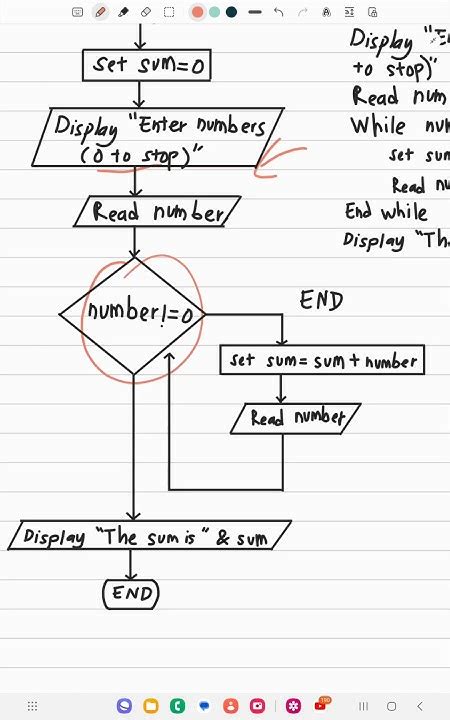 set sum=0
Display "Enter numbers
(0 to stop)"
Read number
number!=0
END
set sum=sum+number
Read number
Display "The sum is" & sum
END
Display
to stop)"
Read
While
set
Read
End while
Display